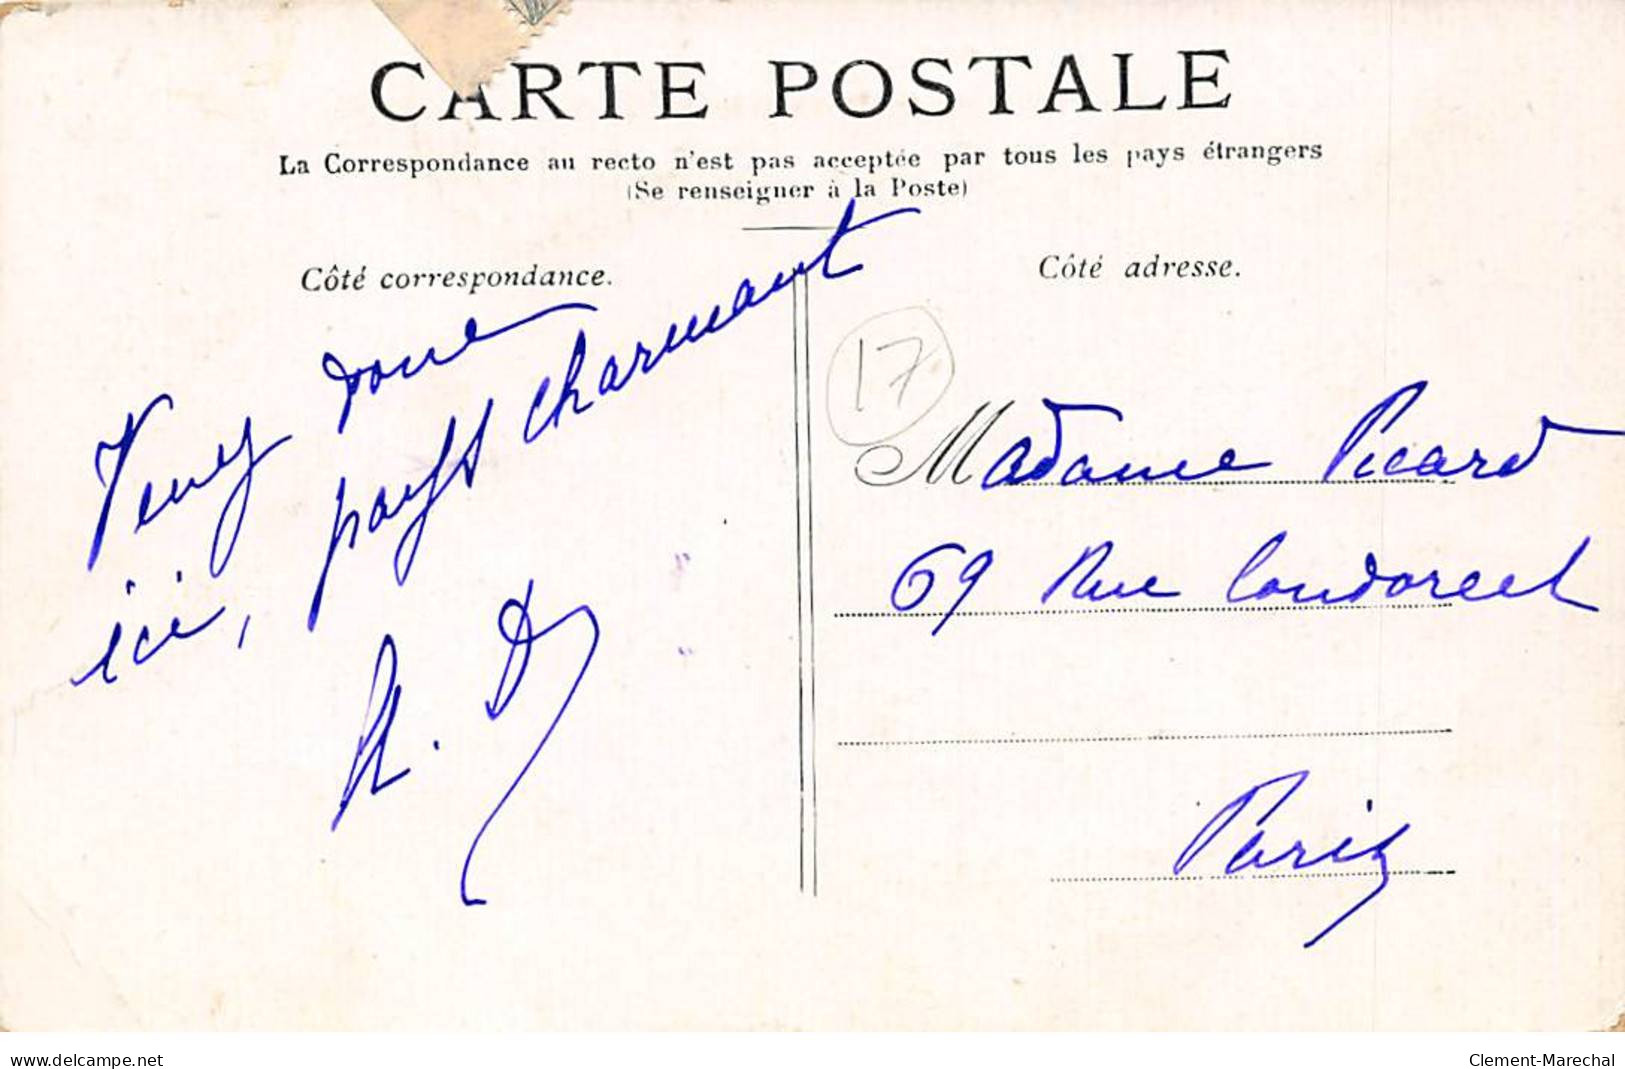 CARTE POSTALE
La Correspondance au recto n'est pas acceptée par tous les pays étrangers
(Se renseigner à la Poste)
Côté correspondance.
Venez donc
ici, pays charmant
Côté adresse.
17
Madame Picard
69 Rue Condorcet
Paris
www.delcampe.net
Clement-Marechal